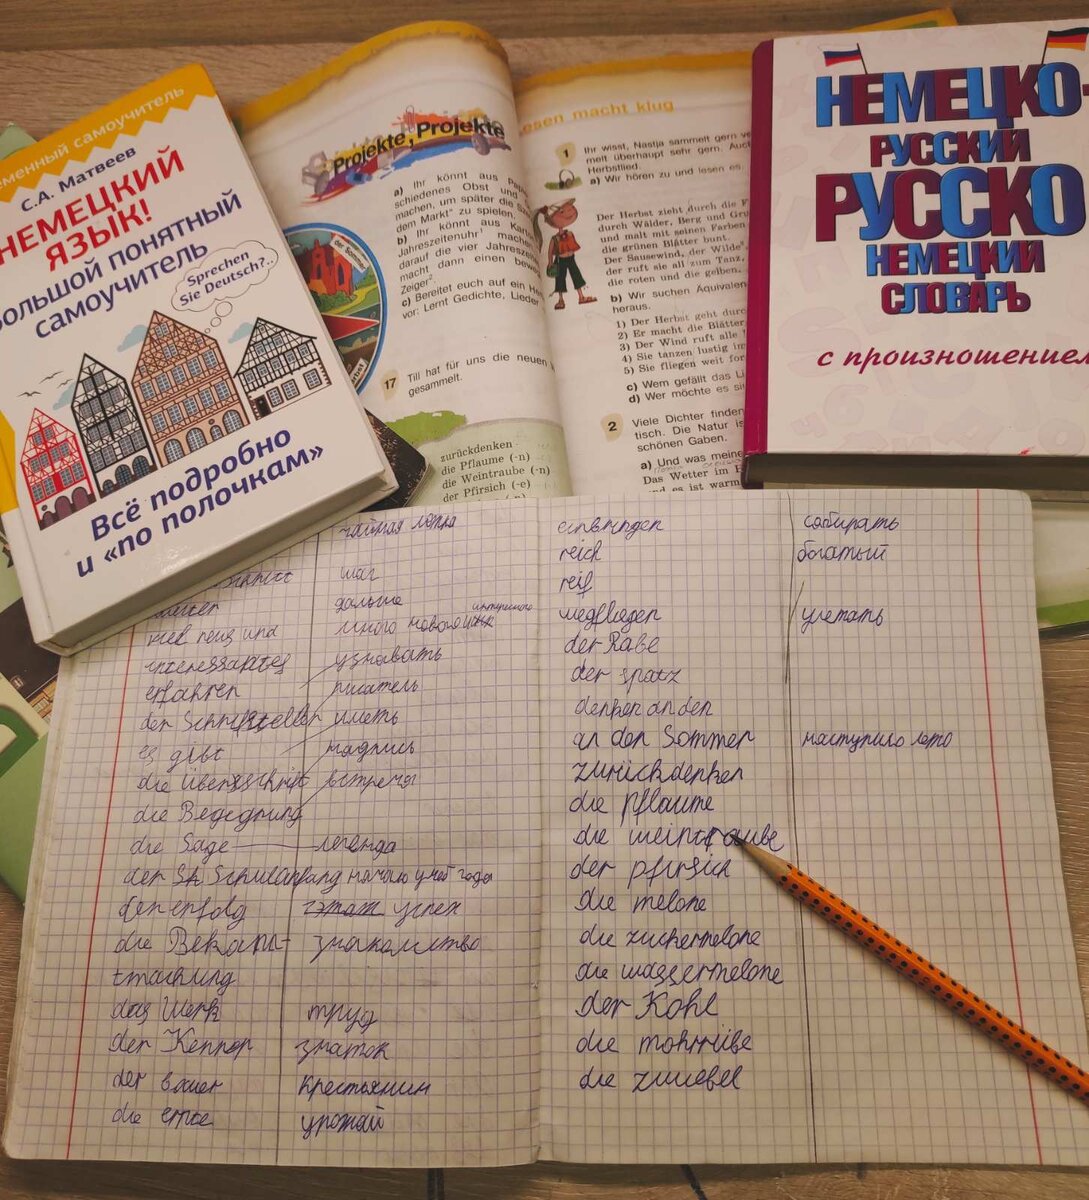 С.А. Матвеев
НЕМЕЦКИЙ
ЯЗЫК!
БОЛЬШОЙ ПОНЯТНЫЙ
САМОУЧИТЕЛЬ
Sprechen
Sie Deutsch?..
Всё подробно
и «по полочкам»
Projekte, Projekte
a) Ihr könnt aus
schiedenes Obst und
machen, um später die
dem Markt" zu spielen.
b) Ihr könnt aus
Jahreszeitenuhr¹ machen
darauf die vier
macht dann einen
Zeiger²
c) Bereitet euch auf ein
vor: Lernt Gedichte, Lieder
der Sommer
17 Till hat für uns die neuen
gesammelt.
zurückdenken
die Pflaume (-n)
die Weintraube (-n)
der Pfirsich (-e)
macht klug
1 Ihr wisst, Nastja sammelt gern
melt überhaupt sehr gern.
Herbstlied.
a) Wir hören und lesen es.
Der Herbst zieht durch die
durch Wälder, Berg und
und malt mit seinen Farben
die grünen Blätter bunt.
Der Sausewind, der Wilde
der ruft sie all zum Tanz,
die roten und die gelben.
b) Wir suchen
heraus.
1) Der Herbst geht
2) Er macht die Blätter
3) Der Wind ruft alle
4) Sie tanzen lustig
5) Sie fliegen weit
c) Wem gefällt das
d) Wer möchte es
2 Viele Dichter finden
tisch. Die Natur
schönen Gaben.
a) Und was
Das Wetter im
und es ist warm
НЕМЕЦКО-
РУССКИЙ
РУССКО-
НЕМЕЦКИЙ
СЛОВАРЬ
с произношением
шаг
дальше
viel neues und много нового
interessantes узнавать
erfahren писатель
der Schriftsteller иметь
es gibt надпись
die Überschrift встреча
die Begegnung
die Sage легенда
der Schulanfang начало учеб года
den erfolg успех
die Bekann- знакомство
tmachung
das Werk труд
der Kenner знаток
der bauer крестьянин
die ernte урожай
einbringen собирать
reich богатый
reif
wegfliegen улетать
der Rabe
der spatz
denken an den
an den Sommer наступило лето
zurückdenken
die pflaume
die weintraube
der pfirsich
die melone
die zuckermelone
die wassermelone
der Kohl
die mohrrübe
die zwiebel